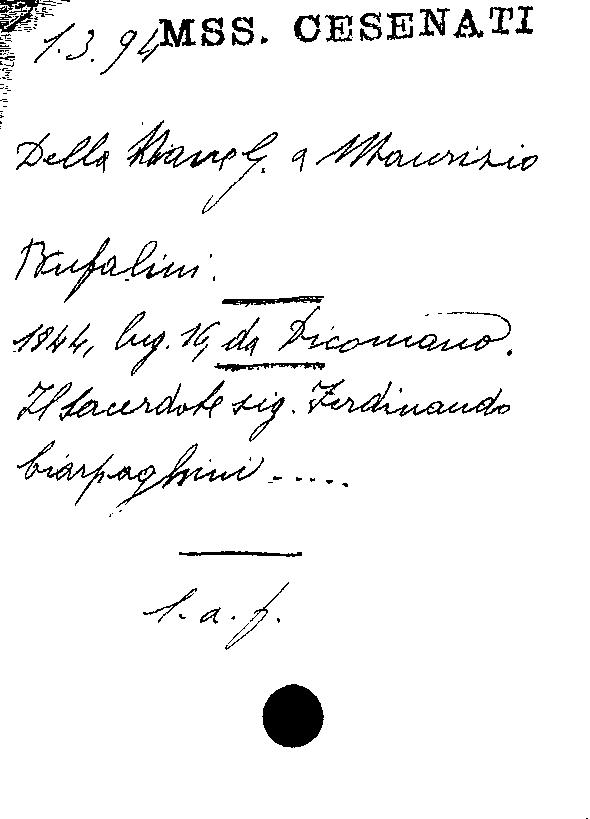 1.3.94 MSS. CESENATI
Della Nave G. a Maurizio
Bufalini.
1844, lug. 16, da Dicomano.
Il sacerdote sig. Ferdinando
Ciarpaghini .....
l. a. f.